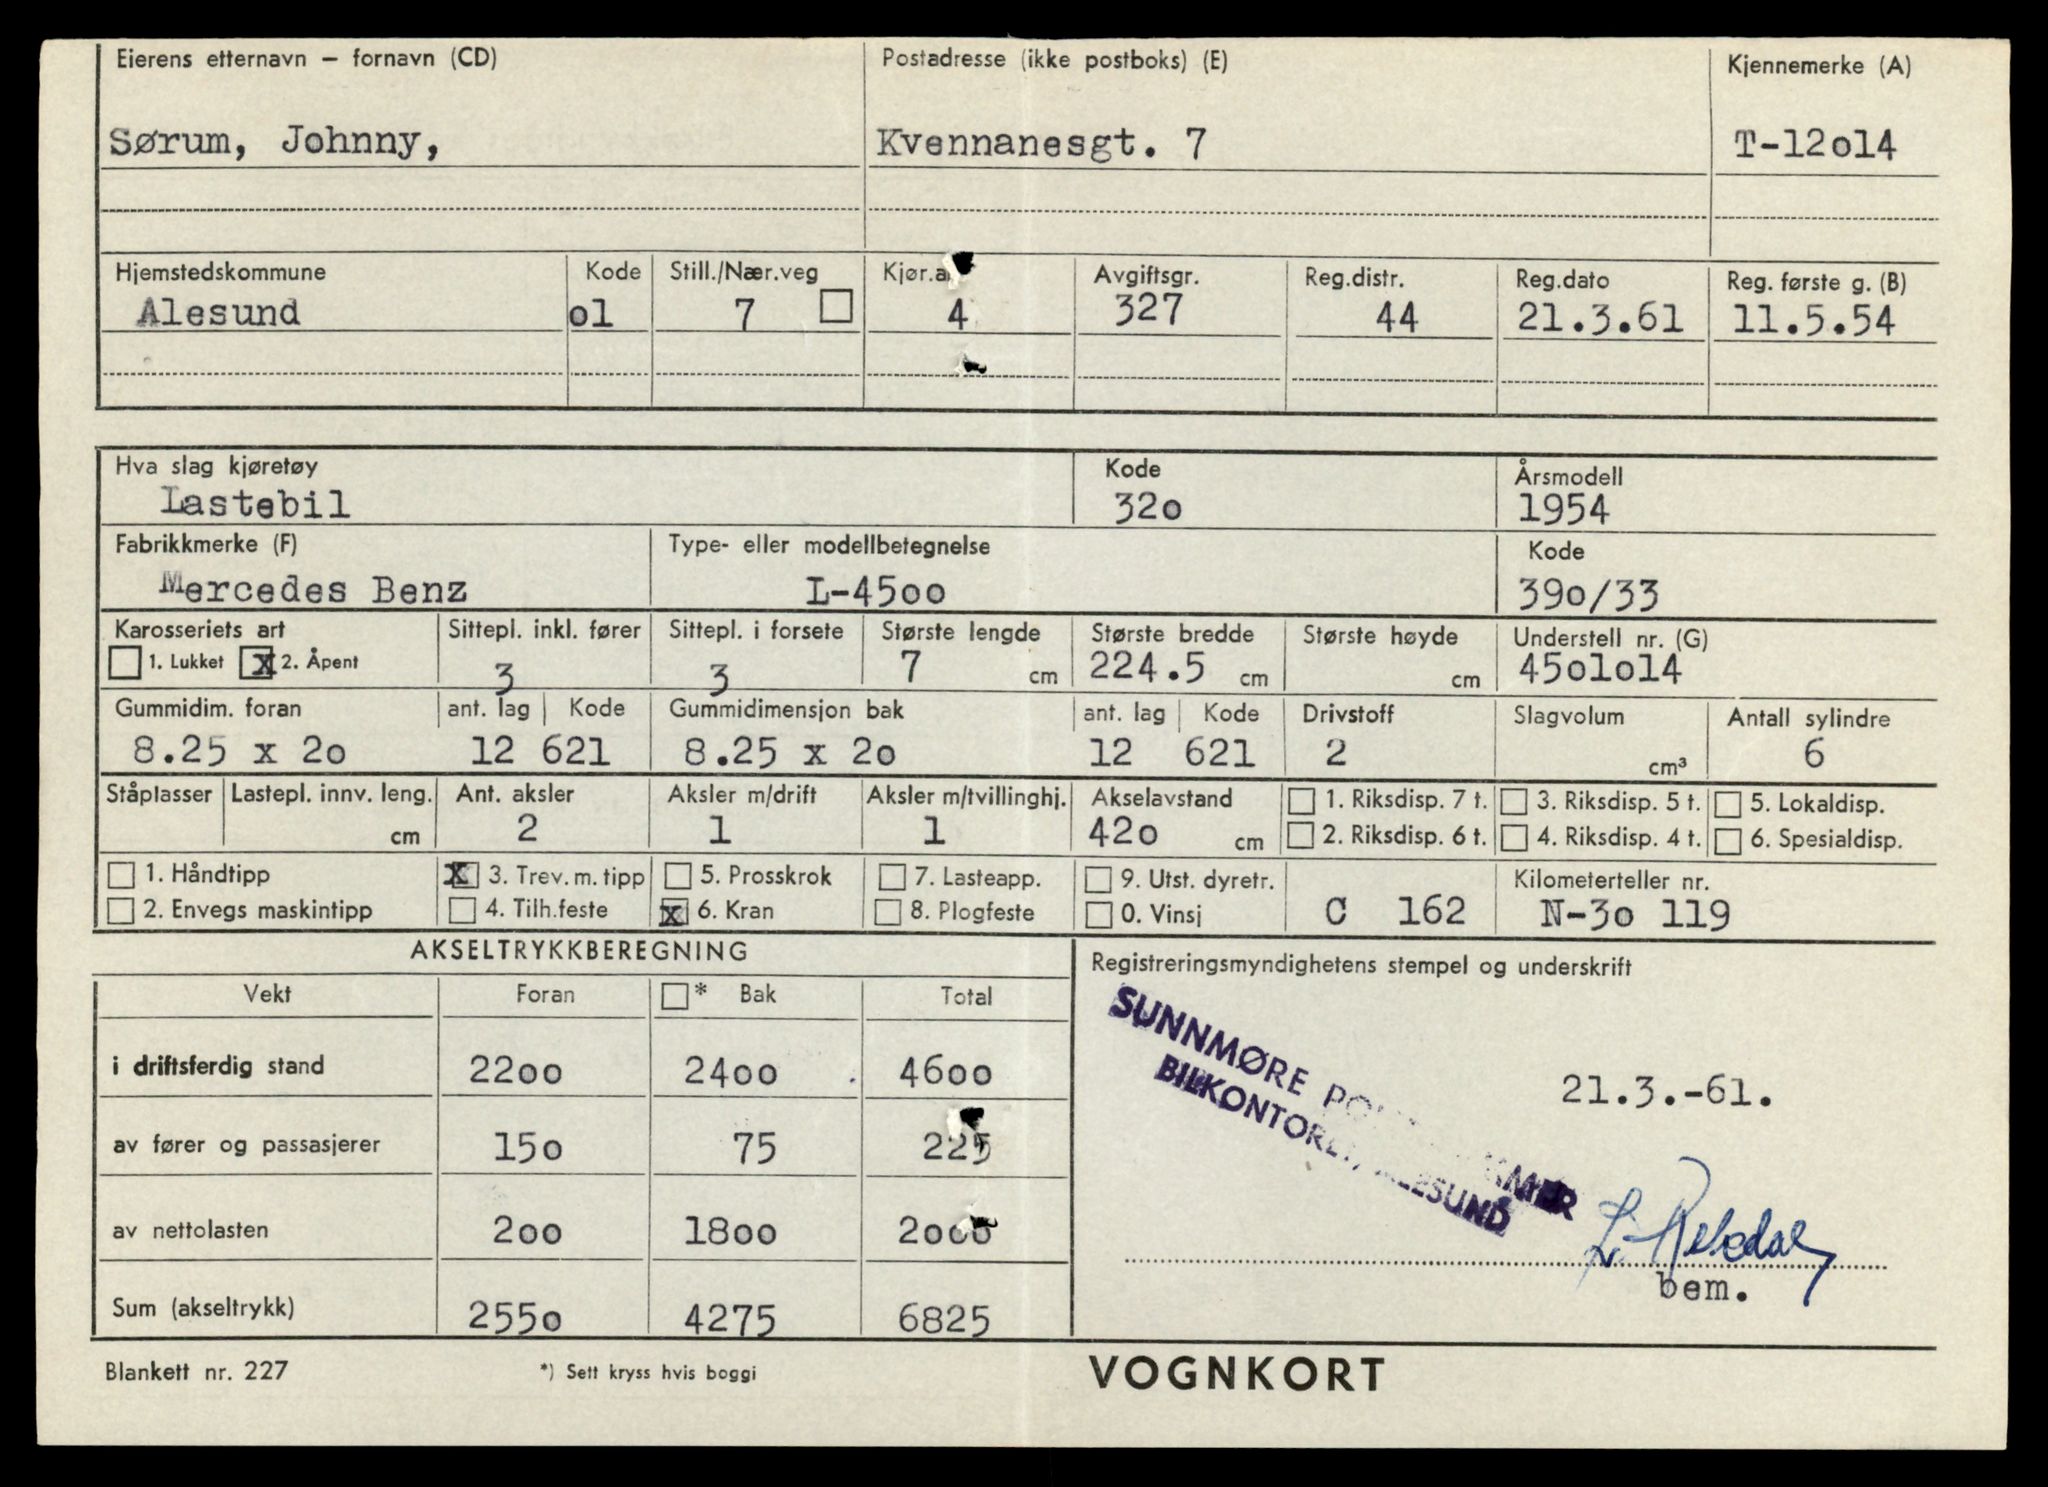 Eierens etternavn – fornavn (CD) Postadresse (ikke postboks) (E) Kjennemerke (A)
Sørum, Johnny, Kvennanesgt. 7 T-12o14
Hjemstedskommune Kode Still./Nær.veg Avgiftsgr. Reg.distr. Reg.dato Reg. første g. (B)
Alesund o1 7 4 327 44 21.3.61 11.5.54
Hva slag kjøretøy Kode Årsmodell
Lastebil 32o 1954
Fabrikkmerke (F) Type- eller modellbetegnelse Kode
Mercedes Benz L-45oo 39o/33
Karosseriets art Sittepl. inkl. fører Sittepl. i forsete Største lengde Største bredde Største høyde Understell nr. (G)
1. Lukket x 2. Åpent 3 3 7 cm 224.5 cm cm 45o1o14
Gummidim. foran ant. lag Kode Gummidimensjon bak ant. lag Kode Drivstoff Slagvolum Antall sylindre
8.25 x 2o 12 621 8.25 x 2o 12 621 2 cm³ 6
Ståplasser Lastepl. innv. leng. Ant. aksler Aksler m/drift Aksler m/tvillinghj. Akselavstand 1. Riksdisp. 7 t. 3. Riksdisp. 5 t. 5. Lokaldisp.
cm 2 1 1 42o cm 2. Riksdisp. 6 t. 4. Riksdisp. 4 t. 6. Spesialdisp.
1. Håndtipp x 3. Trev. m. tipp 5. Prosskrok 7. Lasteapp. 9. Utst. dyretr. Kilometerteller nr.
2. Envegs maskintipp 4. Tilh.feste x 6. Kran 8. Plogfeste 0. Vinsj C 162 N-3o 119
AKSELTRYKKBEREGNING
Registreringsmyndighetens stempel og underskrift
Vekt Foran * Bak Total
SUNNMØRE
BILKONTORET, ÅLESUND
i driftsferdig stand 22oo 24oo 46oo
21.3.-61.
av fører og passasjerer 15o 75 225
av nettolasten 2oo 18oo 2ooo
bem.
Sum (akseltrykk) 255o 4275 6825
Blankett nr. 227 *) Sett kryss hvis boggi VOGNKORT